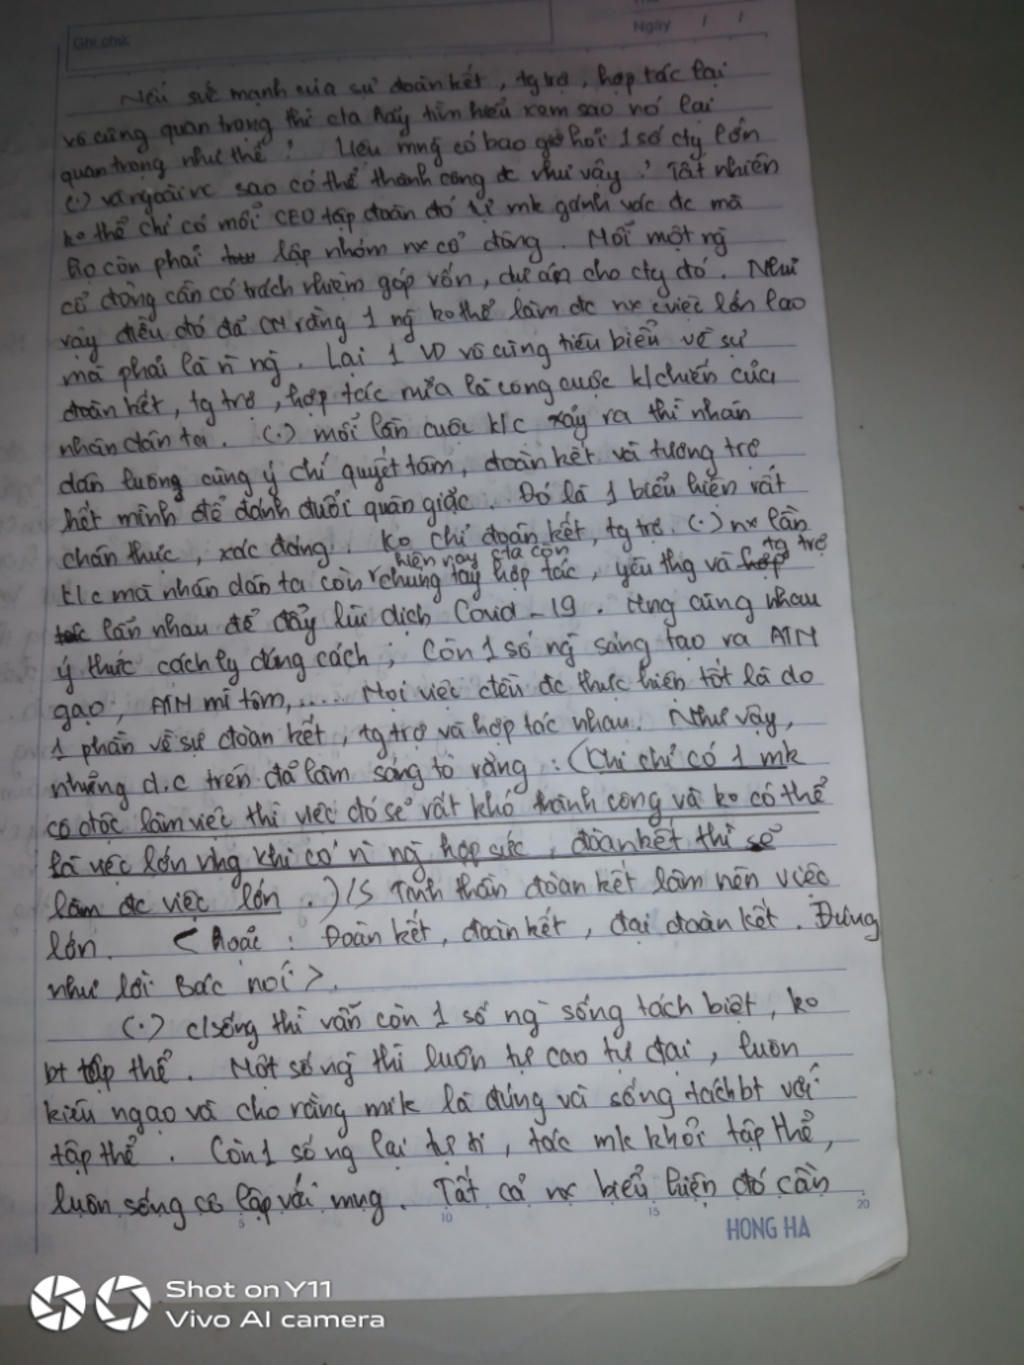 Ghi chú:
Ngày / /
Nếu sức mạnh của sự đoàn kết, tg trợ, hợp tác lại
vô cùng quan trọng thì cta hãy tìm hiểu xem sao nó lại
quan trọng như thế? Liệu mng có bao giờ hỏi 1 số cty lớn
(.) và ngoài nc sao có thể thành công đc như vậy? Tất nhiên
ko thể chỉ có mỗi CEO tập đoàn đó tự mk gánh vác đc mà
họ còn phải lập nhóm nx cổ đông. Mỗi một ng
cổ đông cần có trách nhiệm góp vốn, dự án cho cty đó. Như
vậy điều đó đã CM rằng 1 ng ko thể làm đc nx cviệc lớn lao
mà phải là n ng. Lại 1 VD vô cùng tiêu biểu về sự
đoàn kết, tg trợ, hợp tác nữa là công cuộc k/chiến của
nhân dân ta. (.) mỗi lần cuộc k/c xảy ra thì nhân
dân luông cùng ý chí quyết tâm, đoàn kết và tương trợ
hết mình để đánh đuổi quân giặc. Đó là 1 biểu hiện rất
chân thực, xác đáng. Ko chỉ đoàn kết, tg trợ (.) nx lần
hiện nay cta còn tg trợ
k/c mà nhân dân ta còn chung tay hợp tác, yêu thg và hợp
tác lẫn nhau để đẩy lùi dịch Covid-19. Mng cùng nhau
ý thức cách ly đúng cách; Còn 1 số ng sáng tạo ra ATM
gạo, ATM mì tôm,.... Mọi việc đều đc thực hiện tốt là do
1 phần về sự đoàn kết, tg trợ và hợp tác nhau. Như vậy,
những d.c trên đã làm sáng tỏ rằng: (Khi chỉ có 1 mk
cô độc làm việc thì việc đó sẽ rất khó thành công và ko có thể
là việc lớn nhg khi có n ng hợp sức, đoàn kết thì sẽ
làm đc việc lớn.)/S Tinh thần đoàn kết làm nên việc
lớn. < hoặc: Đoàn kết, đoàn kết, đại đoàn kết. Đúng
như lời Bác nói >.
(.) c/sống thì vẫn còn 1 số ng sống tách biệt, ko
bt tập thể. Một số ng thì luôn tự cao tự đại, luôn
kiêu ngạo và cho rằng mk là đúng và sống tách bt với
tập thể. Còn 1 số ng lại tự ti, tác mk khỏi tập thể,
luôn sống cô lập với mng. Tất cả nx biểu hiện đó cần
5 10 15 20
HONG HA
Shot on Y11
Vivo AI camera